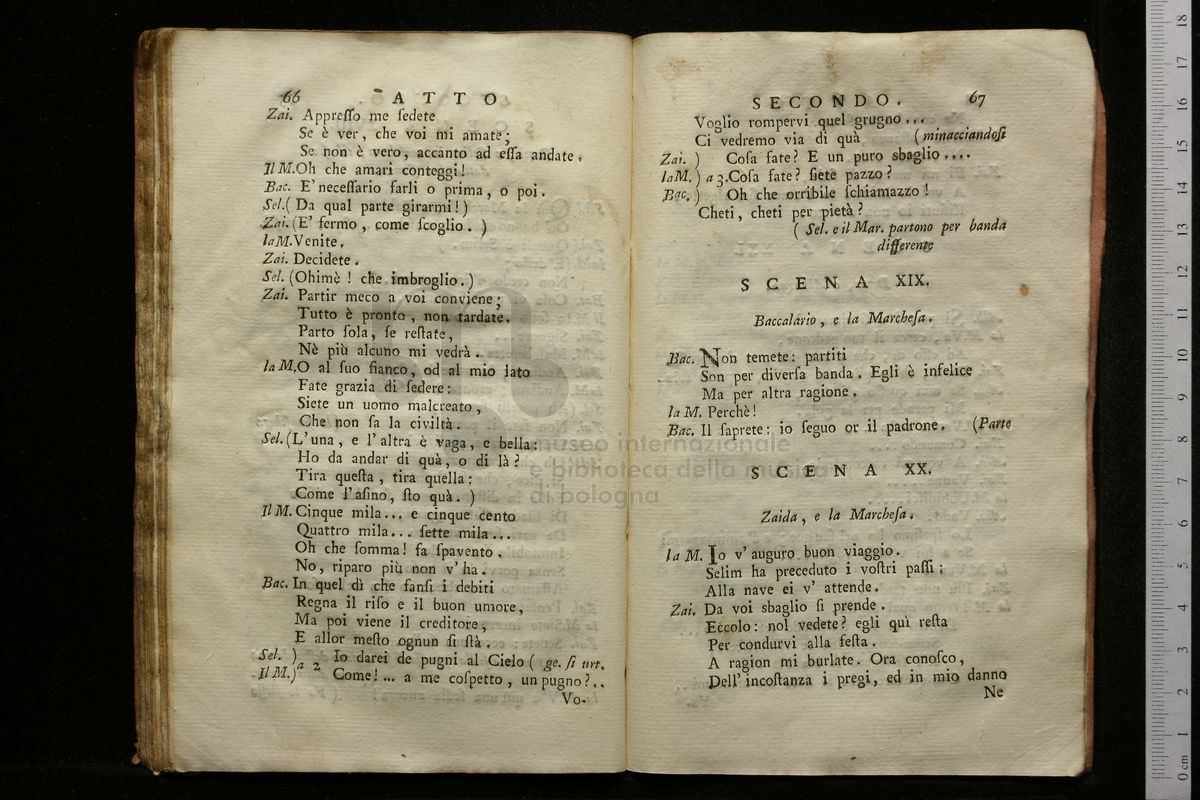 66 ATTO
Zai. Appreſſo me ſedete
Se è ver, che voi mi amate;
Se non è vero, accanto ad eſſa andate.
Il M. Oh che amari conteggi!
Bac. E' neceſſario farli o prima, o poi.
Sel. (Da qual parte girarmi!)
Zai. (E' fermo, come ſcoglio.)
la M. Venite.
Zai. Decidete.
Sel. (Ohimè! che imbroglio.)
Zai. Partir meco a voi conviene;
Tutto è pronto, non tardate.
Parto ſola, ſe reſtate,
Nè più alcuno mi vedrà.
la M. O al ſuo fianco, od al mio lato
Fate grazia di ſedere:
Siete un uomo malcreato,
Che non ſa la civiltà.
Sel. (L'una, e l'altra è vaga, e bella:
Ho da andar di quà, o di là?
Tira queſta, tira quella:
Come l'aſino, ſto quà.)
Il M. Cinque mila... e cinque cento
Quattro mila... ſette mila...
Oh che ſomma! fa ſpavento.
No, riparo più non v'ha.
Bac. In quel dì che fanſi i debiti
Regna il riſo e il buon umore,
Ma poi viene il creditore,
E allor meſto ognun ſi ſtà.
Sel. ) a 2 Io darei de pugni al Cielo ( ge. ſi urt.
Il M. ) Come!... a me coſpetto, un pugno?..
Vo-
SECONDO. 67
Voglio rompervi quel grugno...
Ci vedremo via di quà (minacciandoſi
Zai. ) Coſa fate? E un puro sbaglio....
la M. ) a 3. Coſa fate? ſiete pazzo?
Bac. ) Oh che orribile ſchiamazzo!
Cheti, cheti per pietà?
( Sel. e il Mar. partono per banda
differente
SCENA XIX.
Baccalário, e la Marcheſa.
Bac. Non temete: partiti
Son per diverſa banda. Egli è infelice
Ma per altra ragione.
la M. Perchè!
Bac. Il ſaprete: io ſeguo or il padrone. (Parte
SCENA XX.
Zaida, e la Marcheſa.
la M. Io v'auguro buon viaggio.
Selim ha preceduto i voſtri paſſi;
Alla nave ei v'attende.
Zai. Da voi sbaglio ſi prende.
Eccolo: nol vedete? egli quì reſta
Per condurvi alla feſta.
A ragion mi burlate. Ora conoſco,
Dell'incoſtanza i pregi, ed in mio danno
Ne
museo internazionale
e biblioteca della musica
di bologna
0 cm 1 2 3 4 5 6 7 8 9 10 11 12 13 14 15 16 17 18